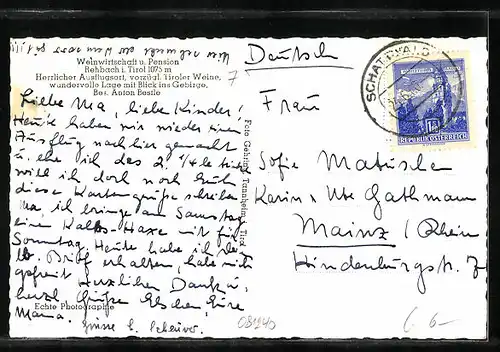 Weinwirtschaft u. Pension
Rehbach i. Tirol 1075 m
Herrlicher Ausflugsort, vorzügl. Tiroler Weine,
wundervolle Lage mit Blick ins Gebirge.
Bes. Anton Bestle
7
Liebe Ma, liebe Kinder!
Heute haben wir wieder einen
Ausflug nach hier gemacht
u. ehe ich das 2. 1/4 le trink
will ich doch noch Euch
diese Kartengrüße schreiben
Ma, ich bringe am Samstag
eine Kalbs-Haxe mit für
Sonntag. Heute habe ich
Brief erhalten, habe mich
gefreut Herzlichen Dank u.
herzl. Grüße Elschen, Eure
Mama.
Echte Photographie
Foto Gehring, Tannheim, Tirol
Deutschl.
SCHATTWALD
REPUBLIK ÖSTERREICH
Frau
Sofie Matuschen
Karin u. Ute Gathmann
Mainz / Rhein
Hindenburgstr. 7
081240
6.-